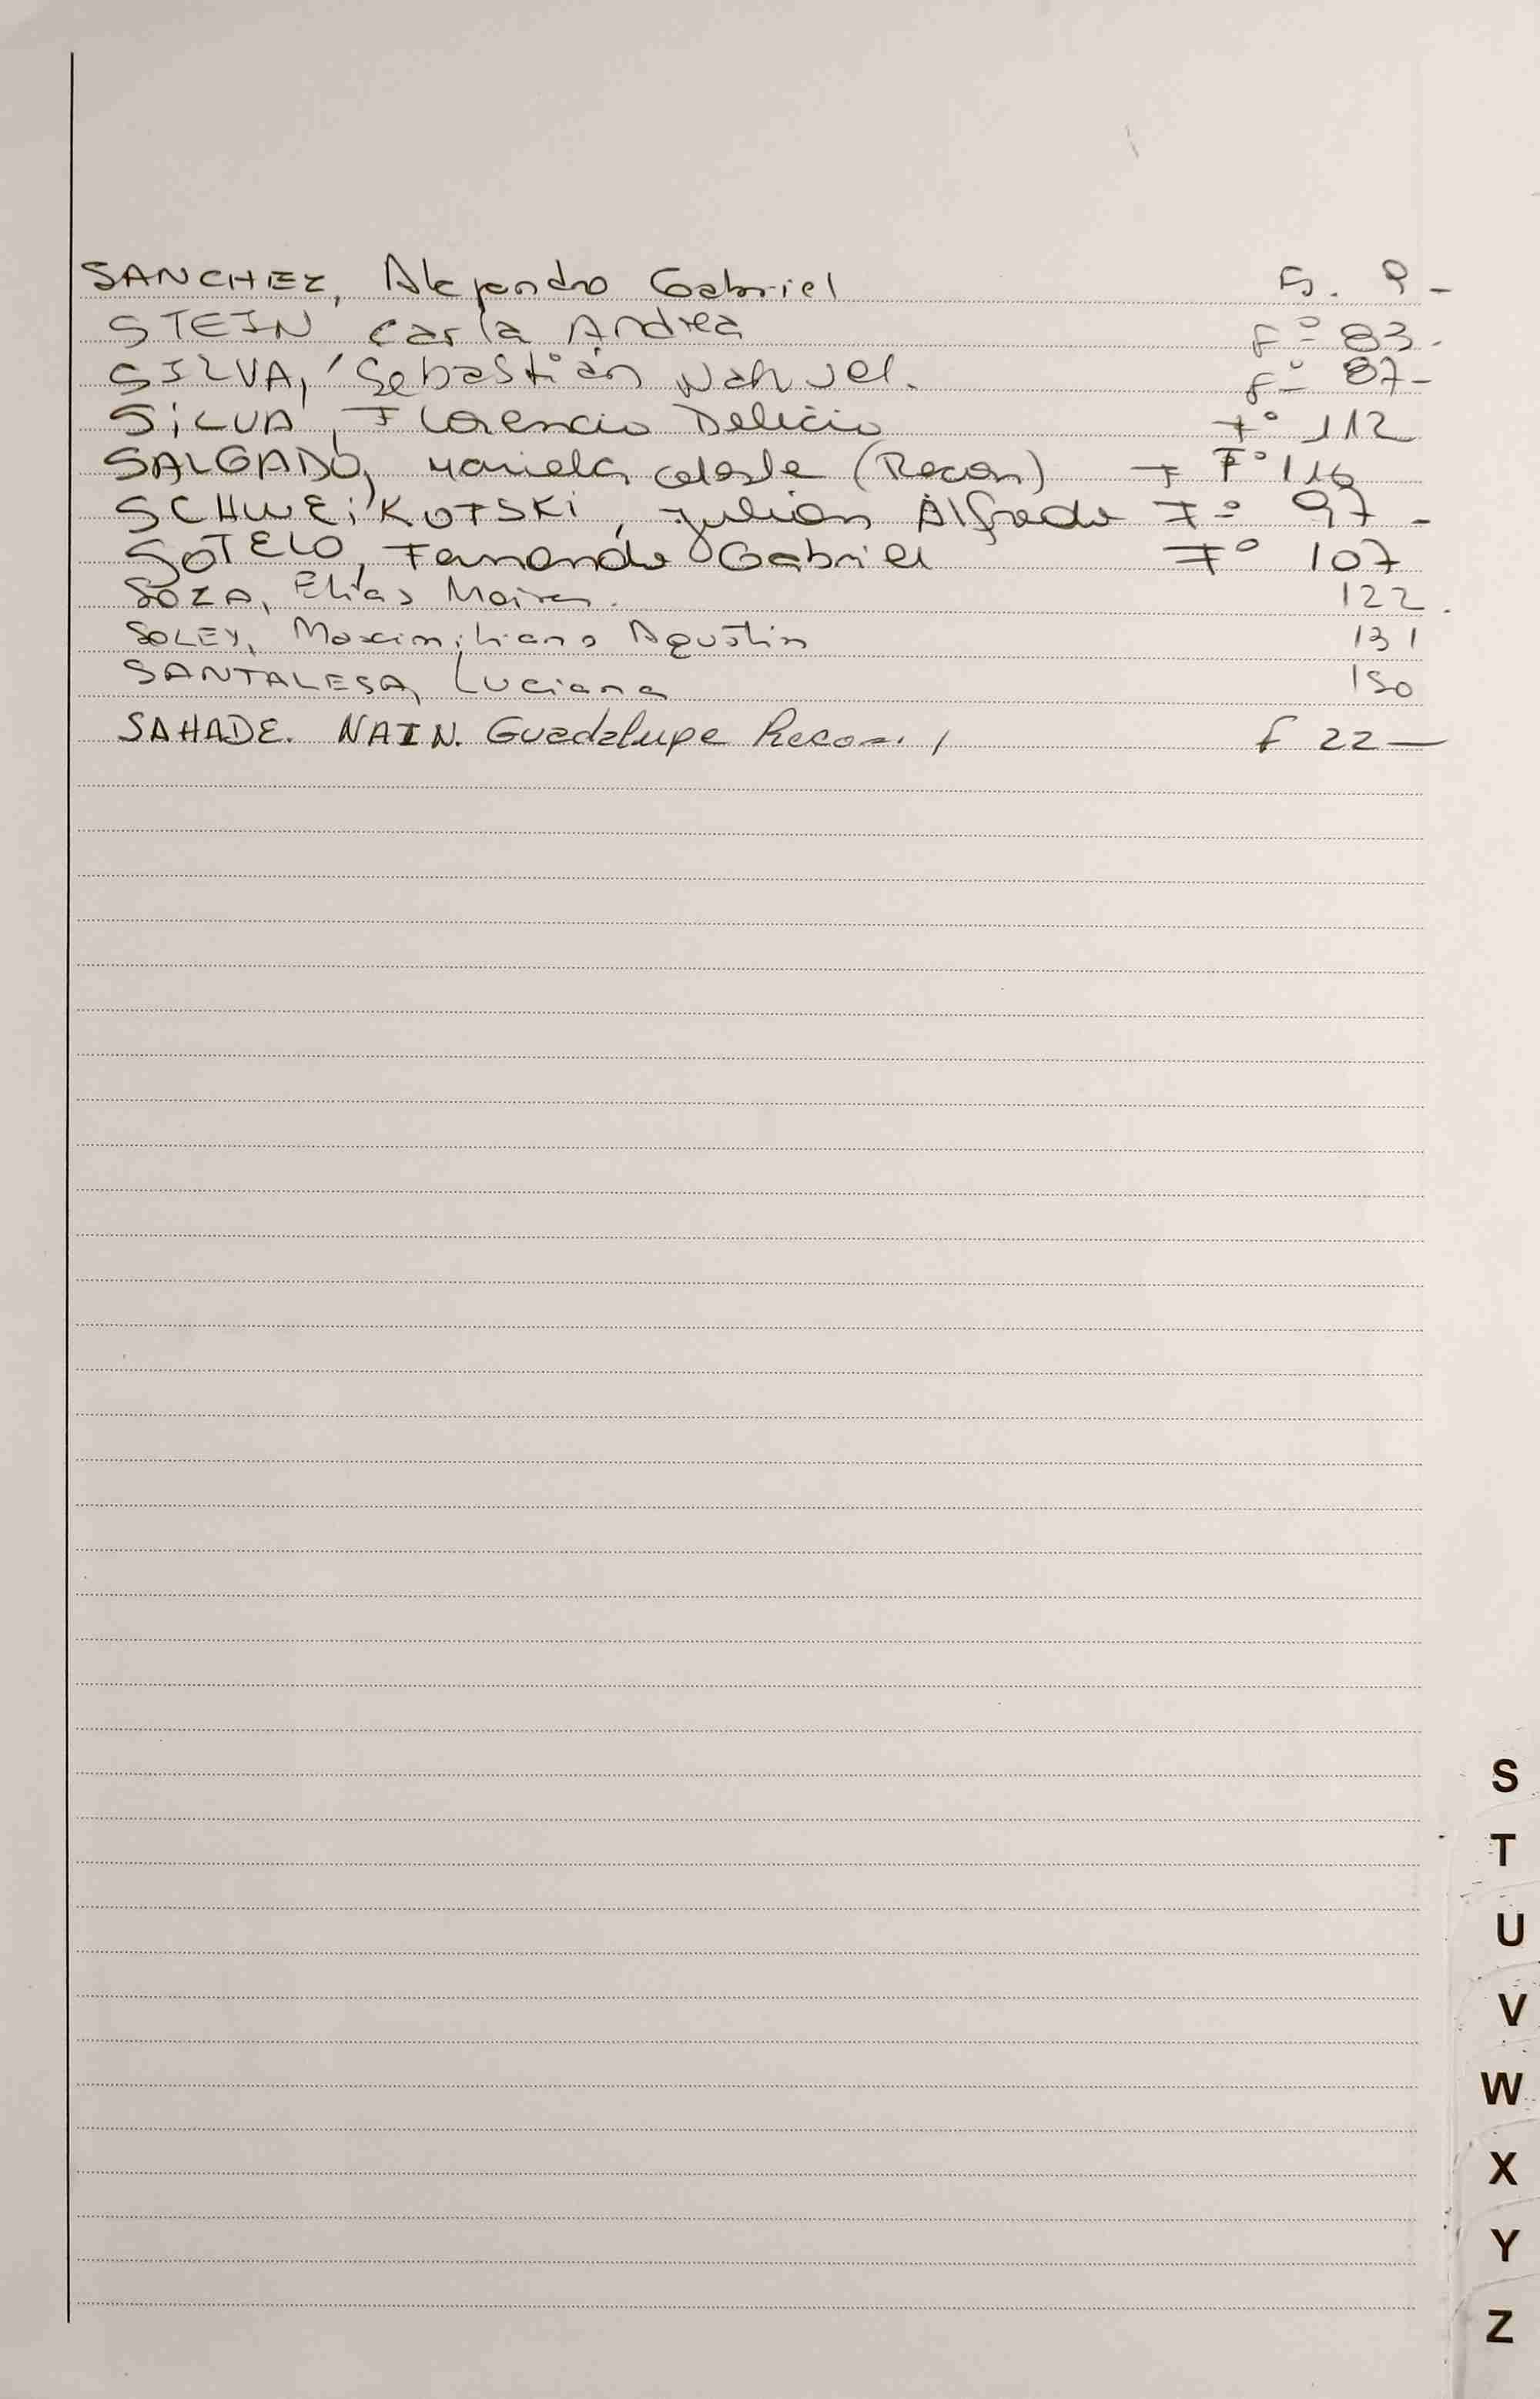 SANCHEZ, Alejandro Gabriel Fs. 9-
STEIN Carla Andrea Fº 83.
SILVA, Sebastián Nahuel. Fº 87-
SiLVA, Florencio Delicio Fº 112
SALGADO, Mariela Celeste (Recon) Fº 116
SCHWEiKOFSKi, Julián Alfredo Fº 97-
SOTELO, Fernando Gabriel Fº 107
SOZA, Elías 122.
SOLEY, Maximiliano Agustín 131
SANTALESA, Luciana 150
SAHADE. NAIN. Guadalupe f 22-
S
T
U
V
W
X
Y
Z